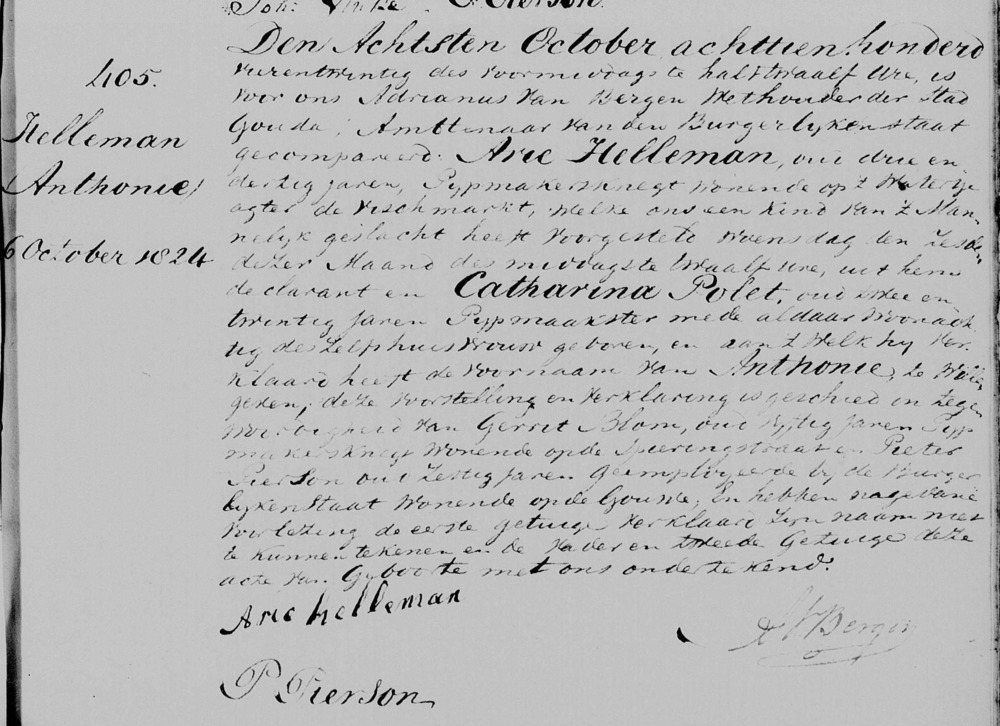 Joh. Vinke. P. Pierson.
405.
Helleman
Anthonie
6 October 1824
Den Achtsten October achttien honderd
vierentwintig des voormiddags te half twaalf Ure, is
voor ons Adrianus Van Bergen Wethouder der Stad
Gouda, Amttenaar van den Burgerlyken Staat
gecompareerd. Arie Helleman, oud drie en
dertig Jaren, Pypmakersknegt wonende op 't Watertje
agter de Vischmarkt, Welke ons een Kind van 't Man-
nelyk geslacht heeft voorgesteld Woensdag den Zesden
dezer Maand des middags te twaalf Ure, uit hem
declarant en Catharina Polet, oud twee en
twintig Jaren Pypmaakster mede aldaar Woonach
tig deszelfs huisvrouw geboren, en aan 't Welk hy Ver
klaard heeft de voornaam van Anthonie, te Willen
geven, deze voorstelling en verklaring is geschied in tegen
woordigheid van Gerrit Blom, oud vyftig Jaren Pyp
makersknegt Wonende op de Spieringstraat en Pieter
Pierson oud Zestig Jaren Geemployeerde by de Burger
lyken Staat Wonende op de Gouwe, En hebben na gedane
Voorlezing de eerste getuige verklaard Zyn naam niet
te kunnen tekenen en de Vader en tweede Getuige deze
acte van Geboorte met ons ondertekend.
Arie helleman
AV Bergen
P. Pierson